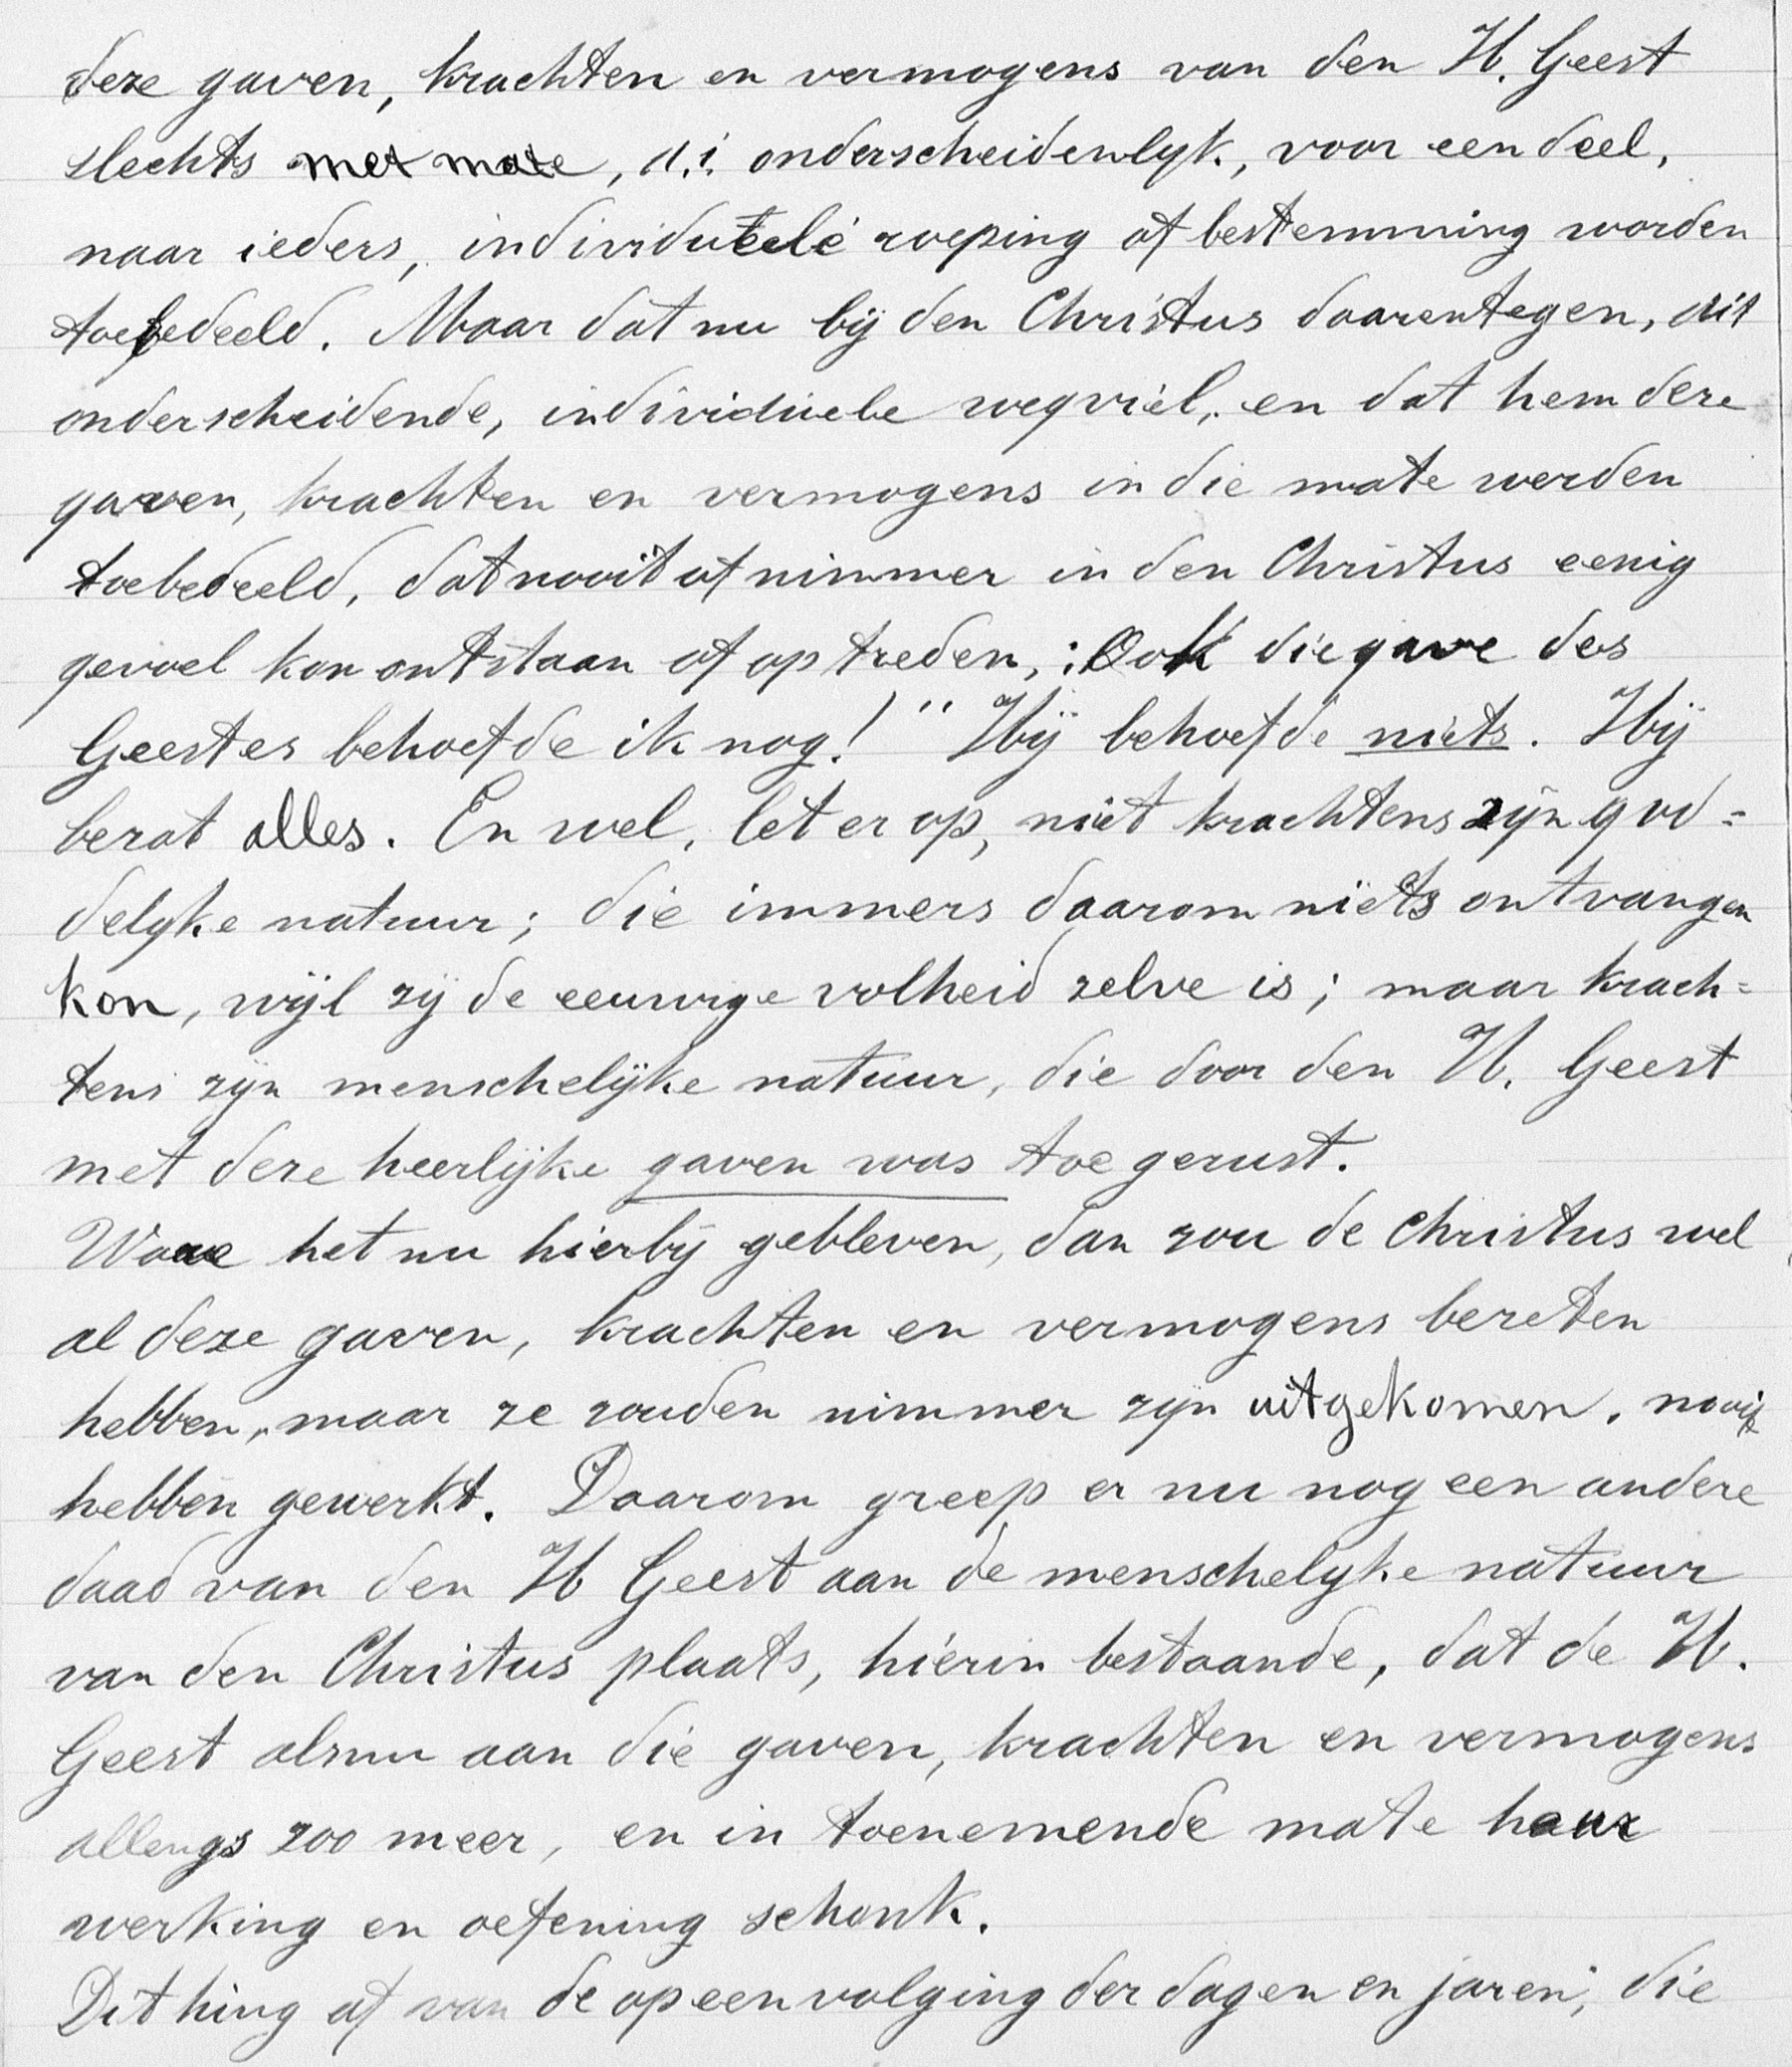 deze gaven, krachten en vermogens van den H. Geest
slechts met mate, d.i. onderscheidenlijk, voor een deel,
naar ieders, individuëele roeping of bestemming worden
toebedeeld. Maar dat nu bij den Christus daarentegen, dit
onderscheidende, individuëele wegviel, en dat hem deze
gaven, krachten en vermogens in die mate werden
toebedeeld, dat nooit of nimmer in den Christus eenig
gevoel kon ontstaan of optreden, : Ook die gave des
Geestes behoefde ik nog!" Hij behoefde niets. Hij
bezat alles. En wel, let er op, niet krachtens zijn god=
delijke natuur; die immers daarom niets ontvangen
kon, wijl zij de eeuwige volheid zelve is; maar krach=
tens zijn menschelijke natuur, die door den H. Geest
met deze heerlijke gaven was toegerust.
Ware het nu hierbij gebleven, dan zou de Christus wel
al deze gaven, krachten en vermogens bezeten
hebben, maar ze zouden nimmer zijn uitgekomen, nooit
hebben gewerkt. Daarom greep er nu nog een andere
daad van den H Geest aan de menschelijke natuur
van den Christus plaats, hierin bestaande, dat de H.
Geest alsnu aan die gaven, krachten en vermogens
allengs zoo meer, en in toenemende mate haar
werking en oefening schonk.
Dit hing af van de opeenvolging der dagen en jaren, die